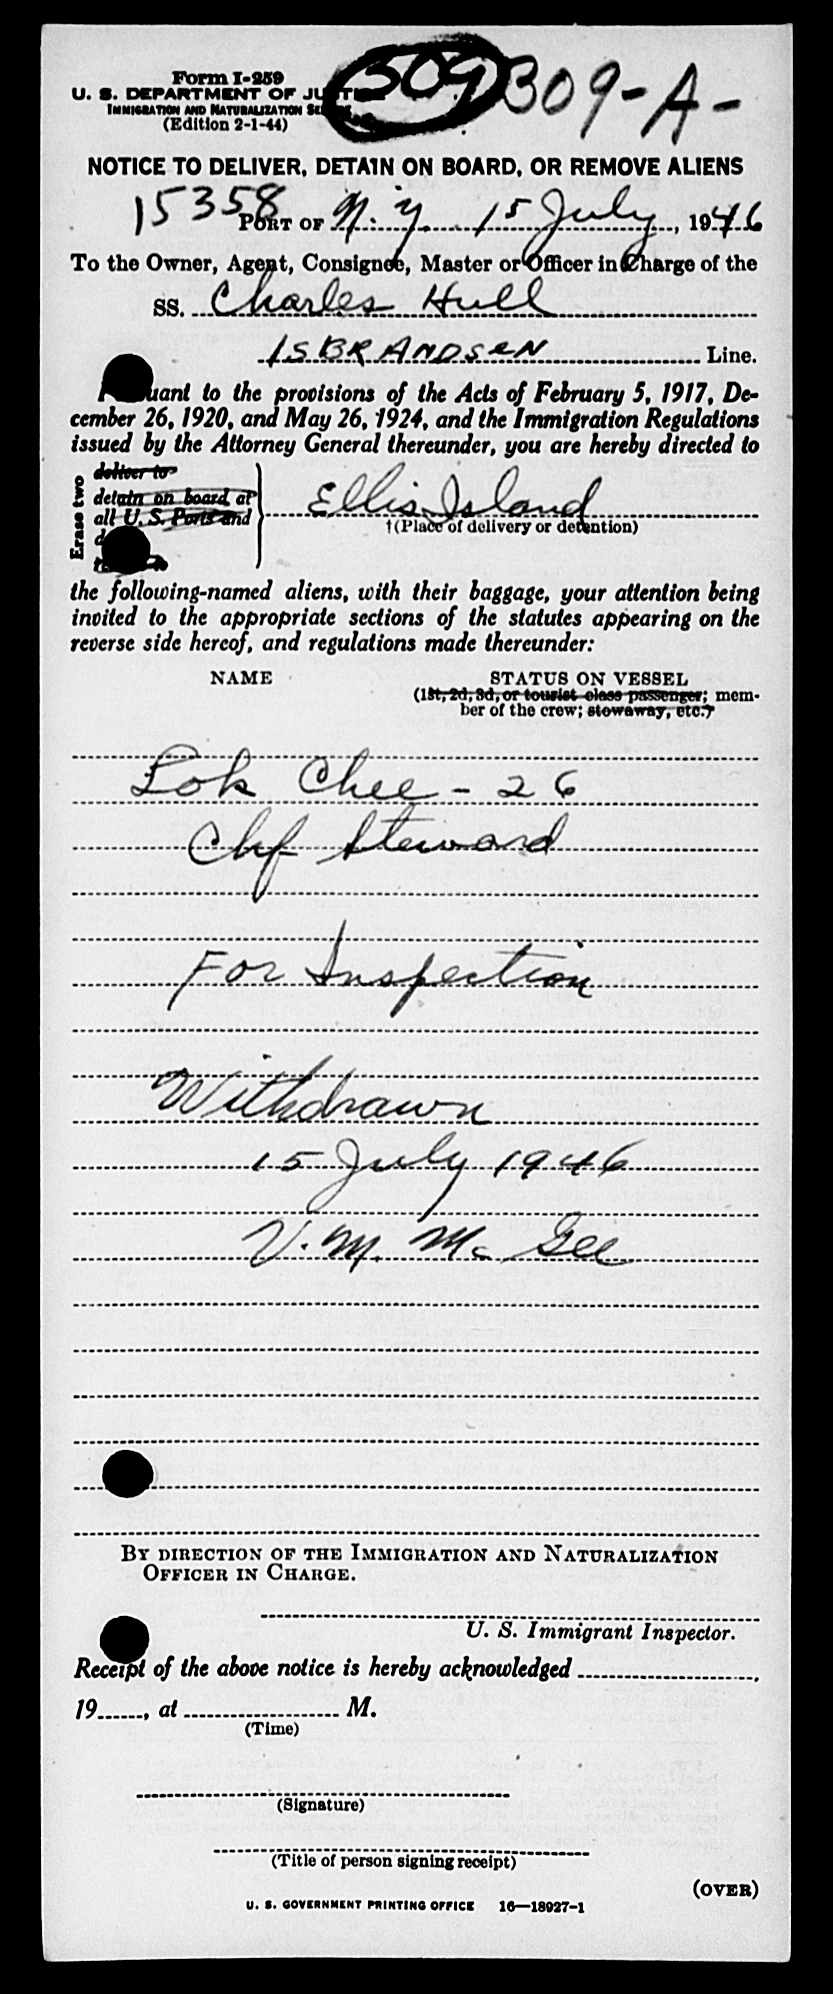 Form I-259
309-A-
U. S. DEPARTMENT OF JUSTICE
IMMIGRATION AND NATURALIZATION
(Edition 2-1-44)
NOTICE TO DELIVER, DETAIN ON BOARD, OR REMOVE ALIENS
15358
PORT OF N. Y. 15 July, 1946
To the Owner, Agent, Consignee, Master or Officer in Charge of the
SS. Charles Hull
ISBRANDSEN Line.
uant to the provisions of the Acts of February 5, 1917, De-
cember 26, 1920, and May 26, 1924, and the Immigration Regulations
issued by the Attorney General thereunder, you are hereby directed to
Erase two
deliver to
detain on board at
all U. S. Ports and
Ellis Island
†(Place of delivery or detention)
the following-named aliens, with their baggage, your attention being
invited to the appropriate sections of the statutes appearing on the
reverse side hereof, and regulations made thereunder:
NAME STATUS ON VESSEL
(1st, 2d, 3d, or tourist class passenger; mem-
ber of the crew; stowaway, etc.)
Lok Chee - 26
Chf Steward
For Inspection
Withdrawn
15 July 1946
V. M. McGee
BY DIRECTION OF THE IMMIGRATION AND NATURALIZATION
OFFICER IN CHARGE.
U. S. Immigrant Inspector.
Receipt of the above notice is hereby acknowledged ,
19 , at M.
(Time)
(Signature)
(Title of person signing receipt)
(OVER)
U. S. GOVERNMENT PRINTING OFFICE 16—18927-1